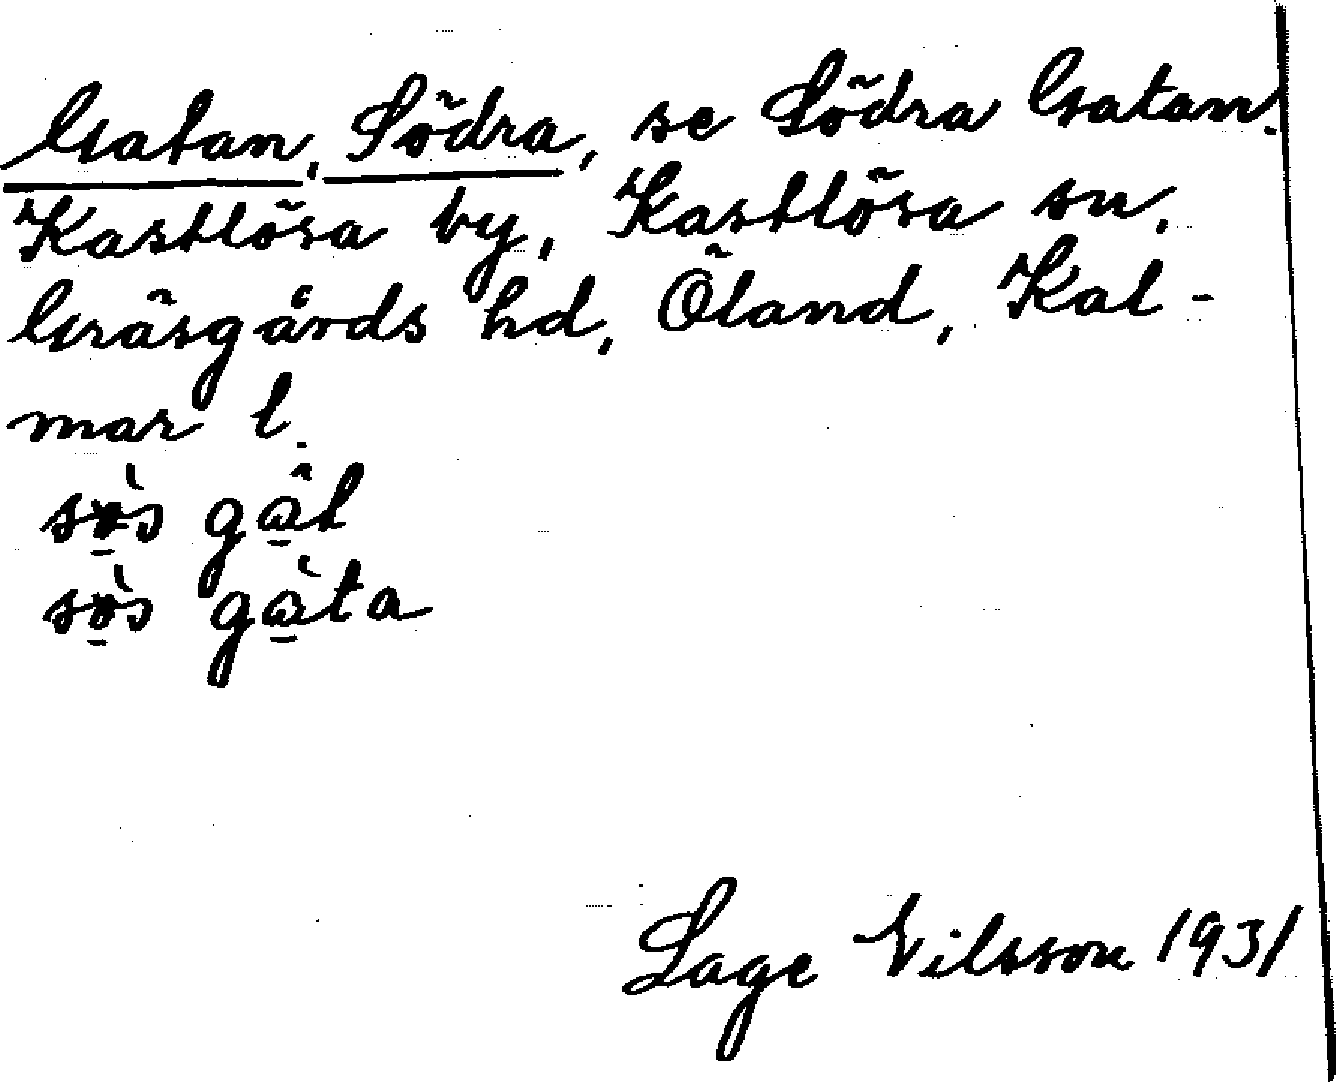 Gatan, Södra, se Södra Gatan.
Kastlösa by, Kastlösa sn,
Gräsgårds hd, Öland, Kal-
mar l.
sö̀s gât
sö̀s gàta
Lage Nilsson 1931